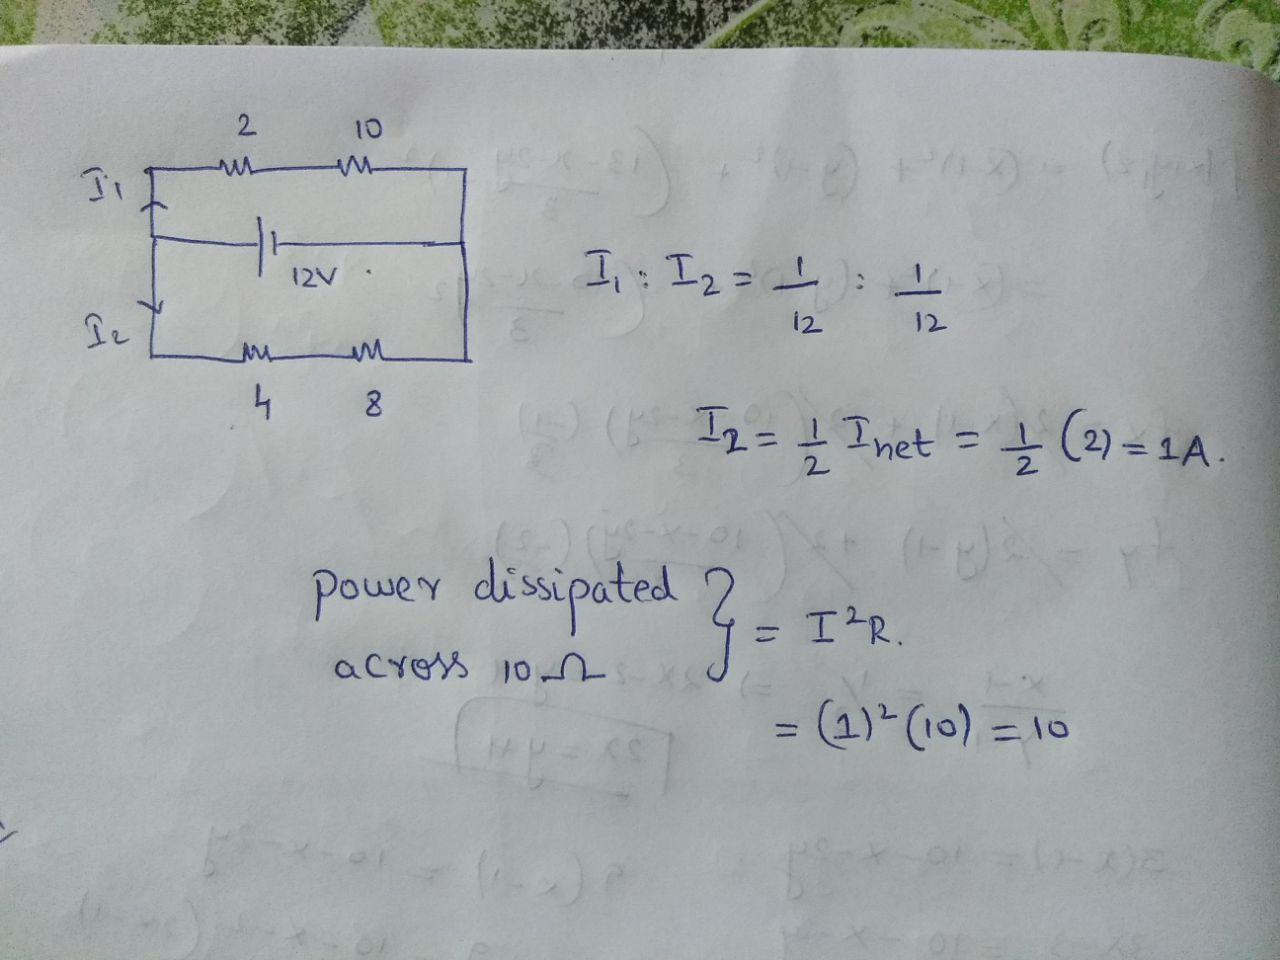 2 10
I₁
12V
I₂
4 8
I₁ : I₂ = 1/12 : 1/12
I₂ = 1/2 Inet = 1/2 (2) = 1A.
power dissipated
across 10Ω } = I²R.
= (1)² (10) = 10